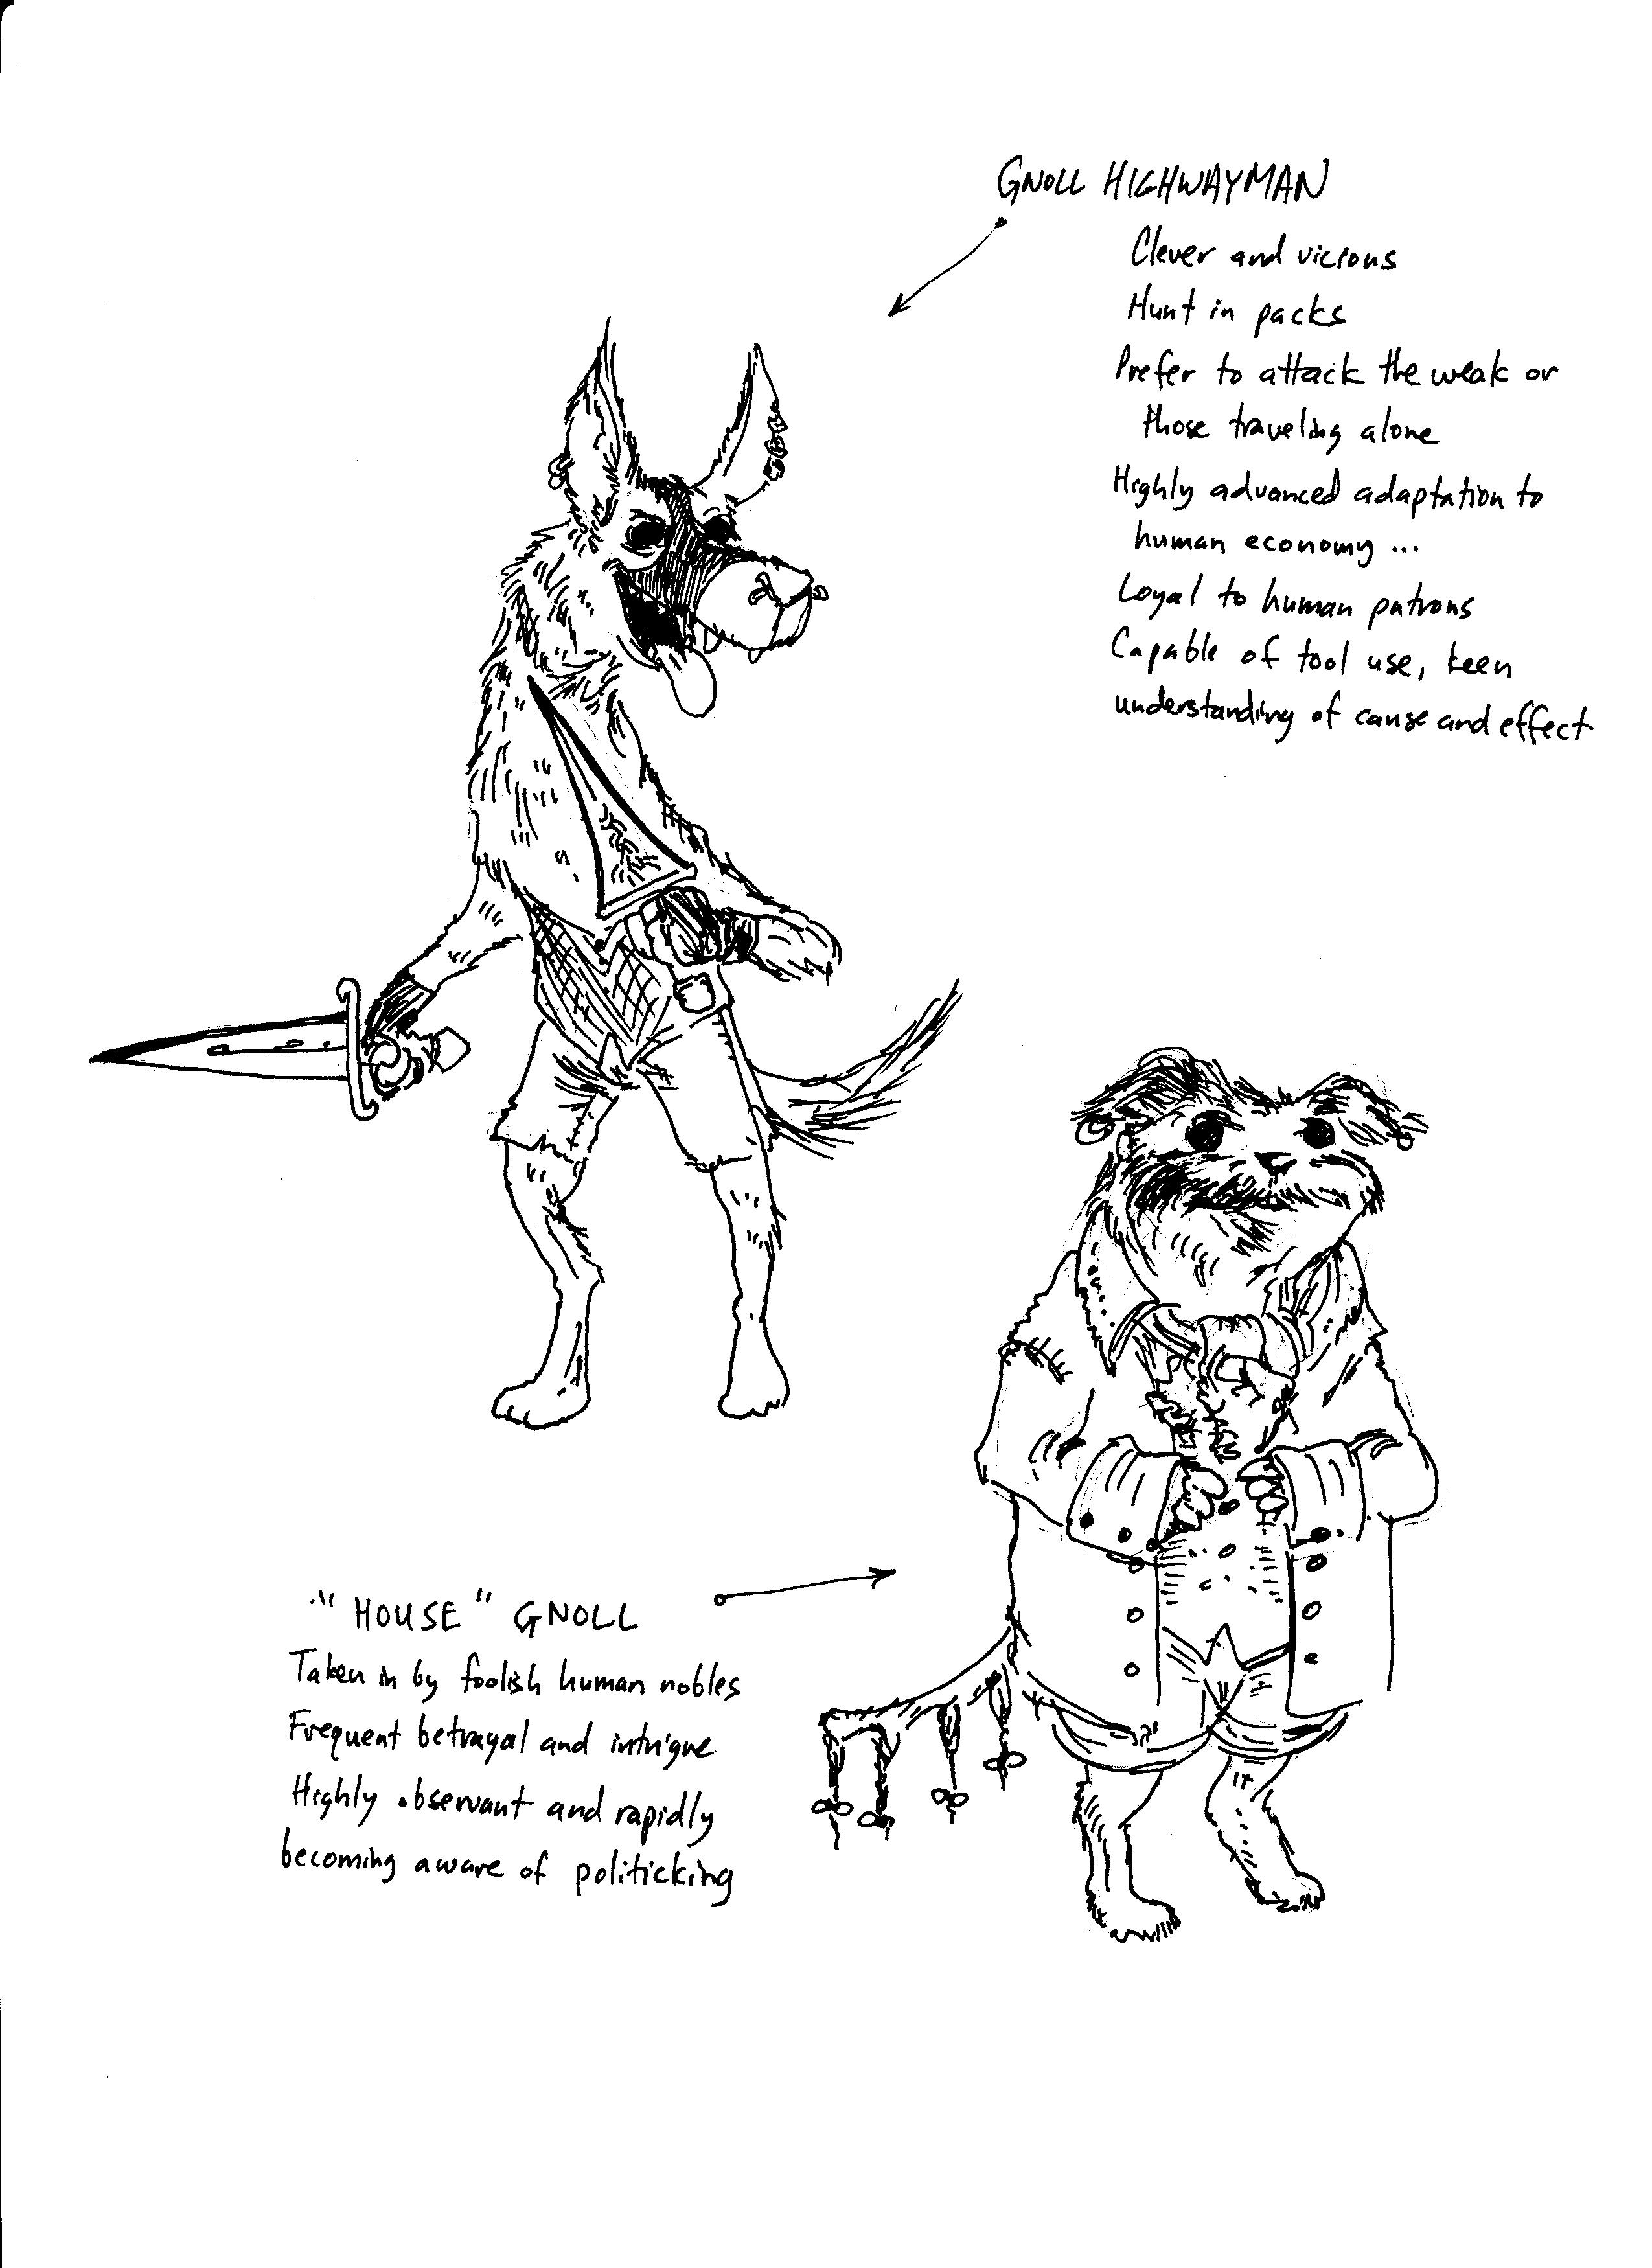 GNOLL HIGHWAYMAN
Clever and vicious
Hunt in packs
Prefer to attack the weak or
those traveling alone
Highly advanced adaptation to
human economy ...
Loyal to human patrons
Capable of tool use, keen
understanding of cause and effect
"HOUSE" GNOLL
Taken in by foolish human nobles
Frequent betrayal and intrigue
Highly observant and rapidly
becoming aware of politicking